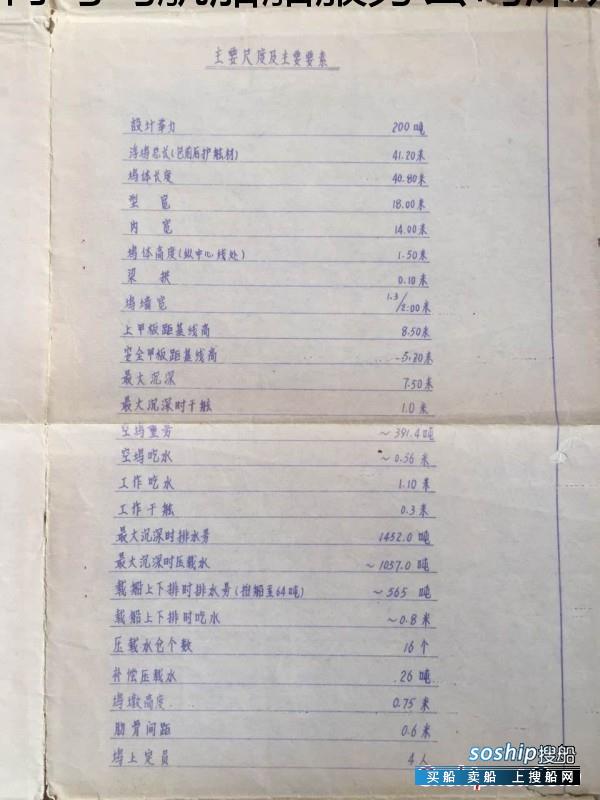 主要尺度及主要要素
設计举力 200吨
浮坞总长(包前后护舷材) 41.20米
坞体长度 40.80米
型宽 18.00米
内宽 14.00米
坞体高度(纵中心线处) 1.50米
梁拱 0.10米
坞墙宽 1.3/2.00米
上甲板距基线高 8.50米
安全甲板距基线高 ~5.20米
最大沉深 7.50米
最大沉深时干舷 1.0米
空坞重劳 ~391.4吨
空坞吃水 ~0.56米
工作吃水 1.10米
工作干舷 0.3米
最大沉深时排水劳 1452.0吨
最大沉深时压载水 ~1037.0吨
载船上下排时排水劳(拖船至64吨) ~565吨
载船上下排时吃水 ~0.8米
压载水仓个数 16个
补偿压载水 26吨
坞墩高度 0.75米
肋骨间距 0.6米
坞上定员 4人
soship搜船
买船 卖船 上搜船网